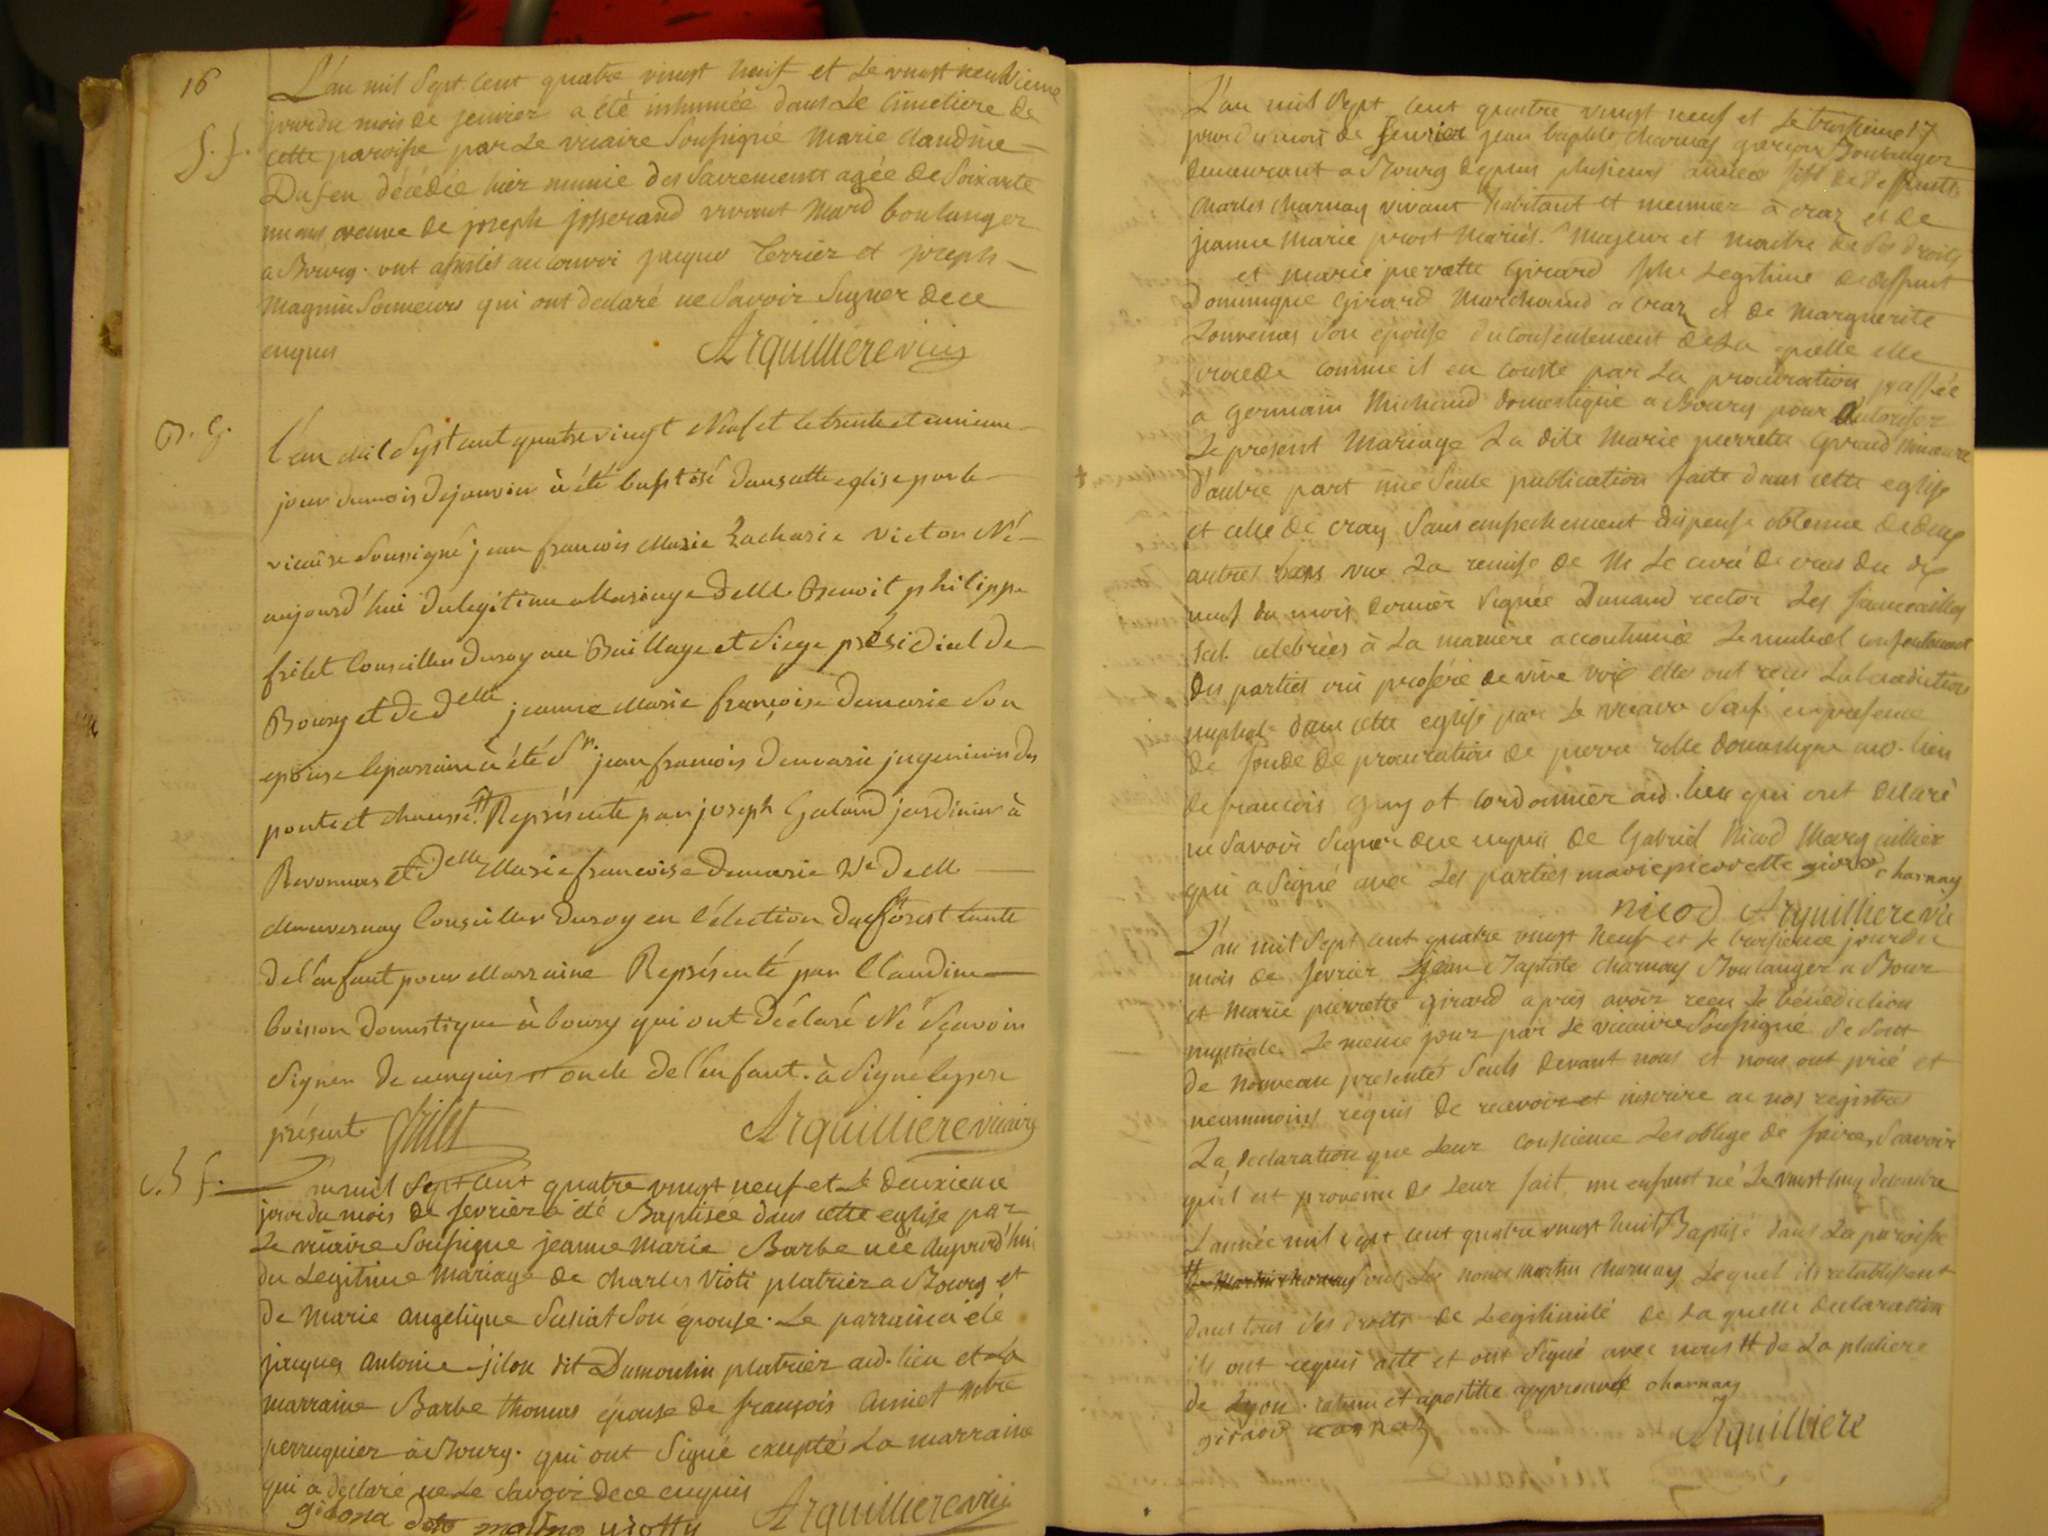 16
L'an mil sept cent quatre vingt neuf et le vingt neuvieme
jour du mois de janvier a été inhumée dans le cimetiere de
S. f.
cette paroisse par le vicaire soussigné Marie claudine
décédée hier munie des sacrements agée de soixante
veuve de joseph josserand vivant Mard boulanger
a Bourg. ont assistés au convoi jacque Terrier et joseph
Magnin sonneurs qui ont declaré ne savoir signer de ce
enquis
Arquilliere vic
B. g.
L'an mil sept cent quatre vingt neuf et le trente et unieme
jour du mois de janvier à été baptisé dans cette eglise par le
vicaire soussigné jean francois Marie Zacharie victor Né
aujourd'hui du legitime Mariage de M. Benoit philippe
frilet Conseiller du roy au Bailliage et siege présidial de
Bourg et de delle jeanne Marie françoise demarie son
epouse le parrain à été Sr. jean francois demarie ingenieur des
ponts et chaussé # Représenté par joseph Galand jardinier à
Revonnas et delle Marie francoise demarie Ve de M.
Mauvernay Conseiller du roy en l'élection du forest tante
de l'enfant pour Marraine Représenté par Claudine
buisson domestique à bourg qui ont déclaré Né Sçavoir
signer de ce enquis # oncle de l'enfant. à signé le pere
présent frilet
Arquilliere vicaire
B f.
L'an mil sept cent quatre vingt neuf et le deuxieme
jour du mois de fevrier a été Baptisée dans cette eglise par
le vicaire soussigné jeanne Marie Barbe née aujourd'hui
du legitime mariage de charles Violi platrier a Bourg et
de Marie angelique son épouse. Le parrain a été
jacques antoine jilon dit Dumoulin platrier aud. lieu et la
marraine Barbe thomas épouse de françois amiet Mtre
perruquier à Bourg. qui ont signé excepté la marraine
qui a declaré ne le savoir de ce enquis
Arquilliere vic
17
L'an mil sept cent quatre vingt neuf et le troisieme
jour du mois de fevrier jean baptiste charnay garçon Boulanger
demeurant a Bourg depuis plusieurs années fils de deffunt
charles charnay vivant habitant et meunier à craz et de
jeanne Marie prost mariés. Majeur et maitre de ses droits
et marie pierrette Girard fille Legitime de deffunt
Dominique Girard Marchand a craz et de Marguerite
son epouse du consentement de la quelle elle
procede comme il en conste par la procuration passée
a germain Michaud domestique a Bourg pour autoriser
le present Mariage la dite Marie pierrette Girard Mineure
d'autre part une seule publication faite dans cette eglise
et celle de cray sans empechement dispense obtenue de deux
autres bans vue la remise de Mr le curé de cras du dix
neuf du mois dernier signée Dunand rector Les fiancailles
celebrées à la maniere accoutumée le mutuel consentement
des parties oui proferé de vive voix elles ont recu la benediction
nuptiale dans cette eglise par le vicaire en presence
de fondé de procuration de pierre rolle domestique aud. lieu
de francois cordonnier aud. lieu qui ont declaré
ne savoir signer de ce enquis de Gabriel Nicod Marguillier
qui a signé avec les parties marie pierrette girard charnay
nicod Arquilliere vic
L'an mil sept cent quatre vingt neuf et le troisieme jour du
mois de fevrier jean Baptiste charnay Boulanger a Bourg
et Marie pierrette girard apres avoir recu la bénédiction
nuptiale le meme jour par le vicaire soussigné se sont
de nouveau presentés seuls devant nous et nous ont prié et
neanmoins requis de recevoir et inscrire en nos registres
La declaration que leur conscience les oblige de faire, savoir
qu'il est provenu de leur fait un enfant né le vingt cinq decembre
L'année mil sept cent quatre vingt huit Baptisé dans la paroisse
# sous les noms Martin charnay lequel ils retablissent
dans tous ses droits de legitimité de la quelle declaration
ils ont requis acte et ont signé avec nous # de la platiere
de Lyon. rature et apostille approuvé charnay
girard
Arquilliere